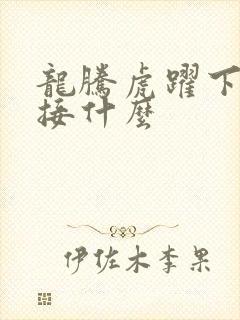 龍騰虎躍下
接什麼
伊佐木李果